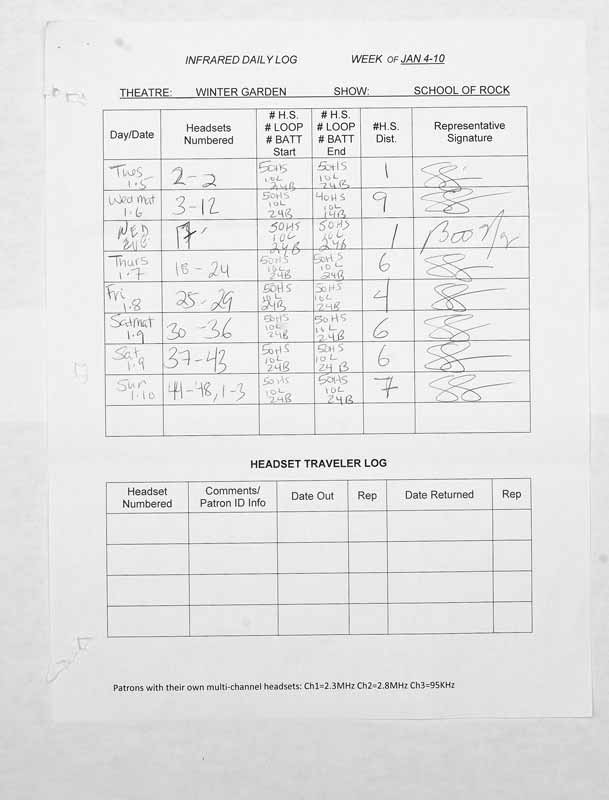 INFRARED DAILY LOG WEEK OF JAN 4-10
THEATRE: WINTER GARDEN SHOW: SCHOOL OF ROCK
Day/Date Headsets Numbered # H.S. # LOOP # BATT Start # H.S. # LOOP # BATT End #H.S. Dist. Representative Signature
Tues 1.5 2-2 50HS 10L 24B 50HS 10L 24B 1
Wed mat 1.6 3-12 50HS 10L 24B 40HS 10L 14B 9
WED EVE 17 50HS 10L 24B 50HS 10L 24B 1
Thurs 1.7 18-24 50HS 10L 24B 50HS 10L 24B 6
Fri 1.8 25-29 50HS 10L 24B 50HS 10L 24B 4
Sat mat 1.9 30-36 50HS 10L 24B 50HS 10L 24B 6
Sat 1.9 37-43 50HS 10L 24B 50HS 10L 24B 6
Sun 1.10 44-48, 1-3 50HS 10L 24B 50HS 10L 24B 7
HEADSET TRAVELER LOG
Headset Numbered Comments/ Patron ID Info Date Out Rep Date Returned Rep
Patrons with their own multi-channel headsets: Ch1=2.3MHz Ch2=2.8MHz Ch3=95KHz